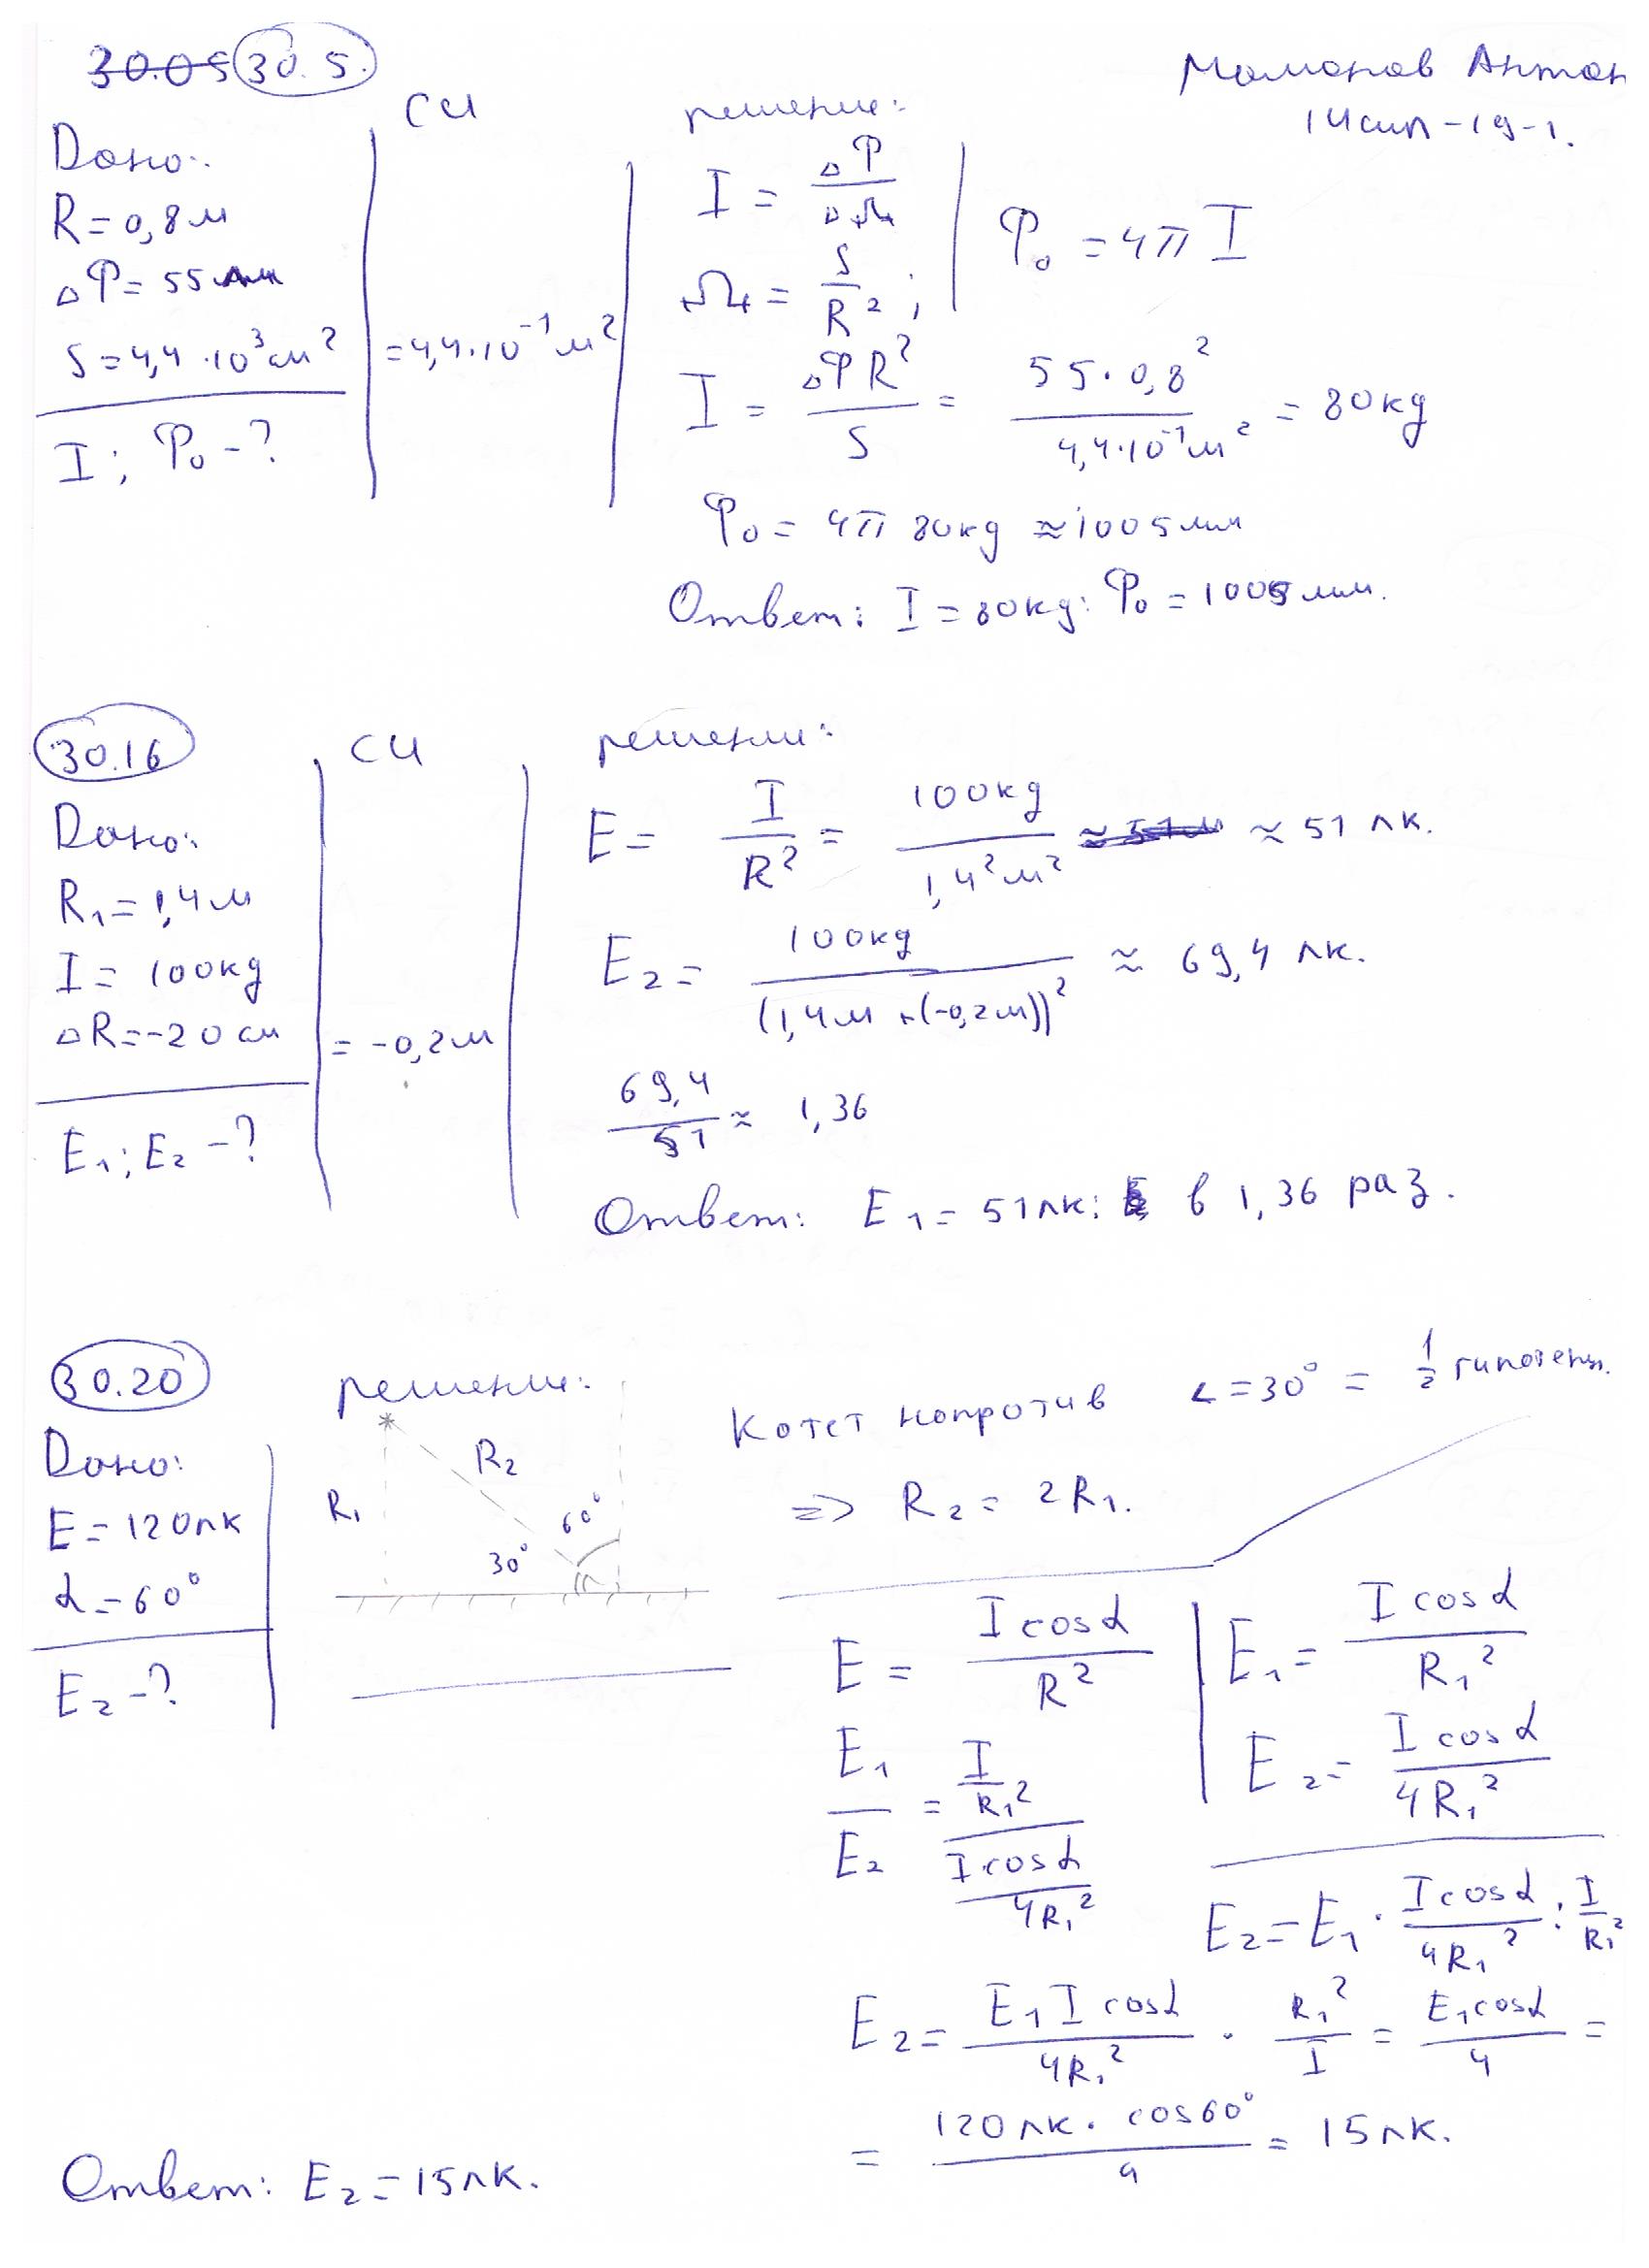 30.05 30.5.
Момонов Антон
14сип-19-1.
Дано:
СИ
решение:
R = 0,8 м
ΔФ = 55 лм
S = 4,4 · 10³ см²
= 4,4 · 10⁻¹ м²
I; Ф₀ - ?
I = ΔФ/ΔΩ
Ω = S/R²;
Ф₀ = 4π I
I = ΔФR²/S = 55 · 0,8²/4,4·10⁻¹м² = 80 кд
Ф₀ = 4π 80кд ≈ 1005 лм
Ответ: I = 80кд: Ф₀ = 1005 лм.
30.16
СИ
решение:
Дано:
R₁ = 1,4 м
I = 100кд
ΔR = -20 см
= -0,2 м
E₁; E₂ - ?
E = I/R² = 100кд/1,4²м² ≈ 51 лк.
E₂ = 100кд/(1,4м + (-0,2м))² ≈ 69,4 лк.
69,4/51 ≈ 1,36
Ответ: E₁ = 51лк; в 1,36 раз.
30.20
решение:
Дано:
E = 120лк
α = 60°
E₂ - ?
R₁
R₂
60°
30°
Катет напротив ∠ = 30° = 1/2 гипотены.
=> R₂ = 2R₁.
E = I cosα/R²
E₁ = I cosα/R₁²
E₂ = I cosα/4R₁²
E₁/E₂ = (I/R₁²)/(I cosα/4R₁²)
E₂ = E₁ · I cosα/4R₁² : I/R₁²
E₂ = E₁ I cosα/4R₁² · R₁²/I = E₁cosα/4 =
= 120лк · cos60°/4 = 15лк.
Ответ: E₂ = 15лк.